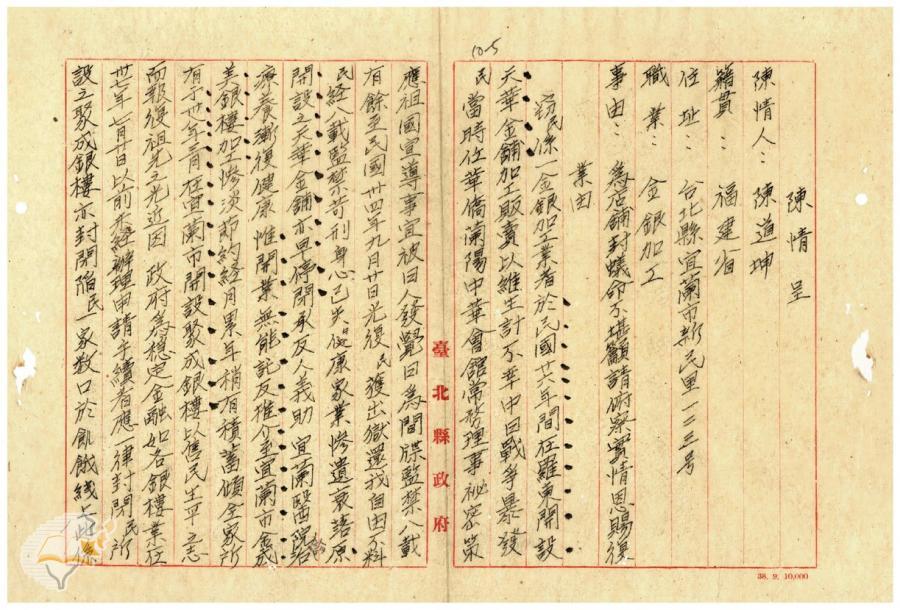 10-5
陳情呈
陳情人：陳道坤
籍貫：福建省
住址：台北縣宜蘭市新民里一二三号
職業：金銀加工
事由：為店舖封蟻命不堪籲請俯察實情恩賜復
業由
竊民係一金銀加工業者於民國廿六年間在羅東開設
天華金舖加工販賣以維生計不幸中日戰爭暴發
民當時任華僑蘭陽中華會館常務理事祕密策
臺北縣政府
應祖國宣導事宜被日人發覺曰為間牒監禁八載
有餘至民國卅四年九月廿日光復民獲出獄還我自由不料
民經八載監禁苛刑身心已失健康家業慘遺衰落原
開設之天華金舖亦早停閉承友人義助宜蘭醫院
療養漸復健康惟開業無能託友推介至宜蘭市金成
美銀樓加工慘淡節約經月累年稍有積蓄傾全家所
有于卅年三月在宜蘭市開設聚成銀樓以舊民生平之志
而報復祖先之光近因政府為穩定金融如各銀樓業在
卅七年七月廿日以前未經辦理申請手續者應一律封閉民所
設之聚成銀樓亦封閉陷民一家数口於飢餓线上
38. 9. 10,000